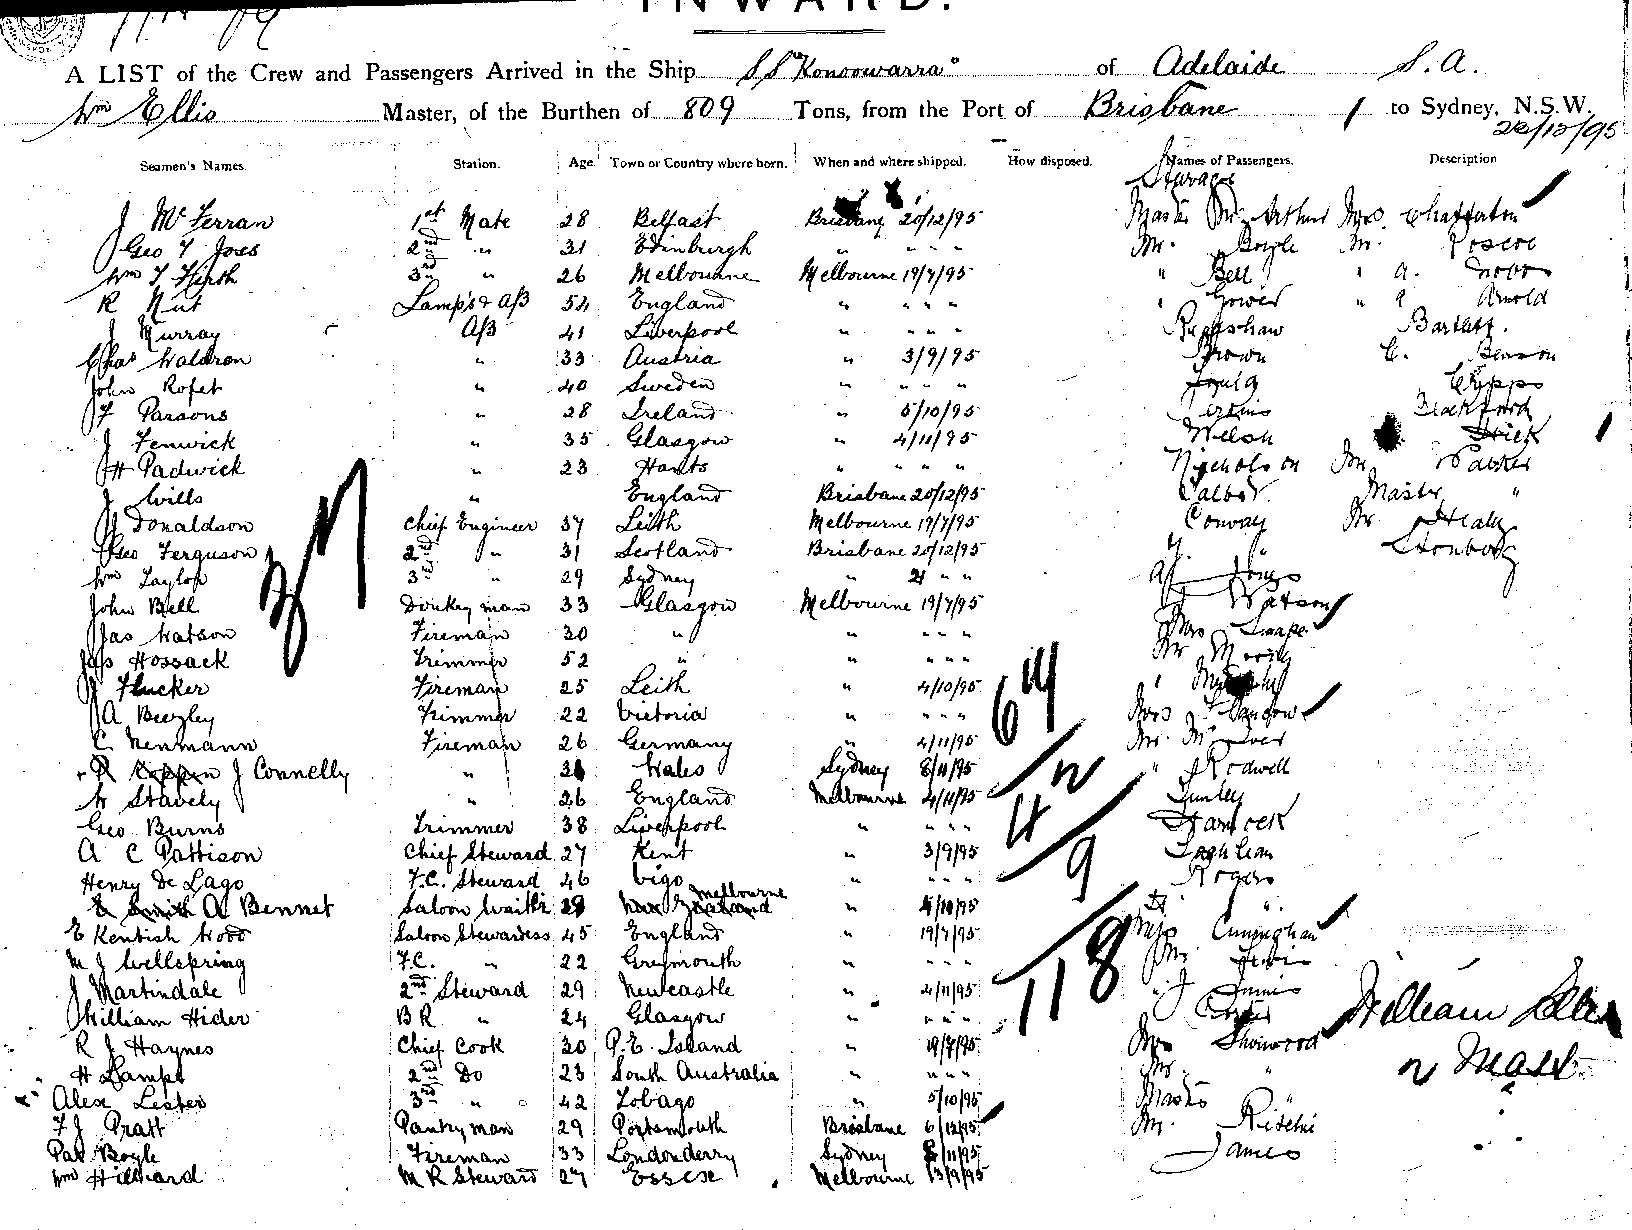 INWARD.
A LIST of the Crew and Passengers Arrived in the Ship SS "Konoowarra" of Adelaide S.A.
Wm Ellis Master, of the Burthen of 809 Tons, from the Port of Brisbane to Sydney, N.S.W.
22/12/95
Seamen's Names. Station. Age. Town or Country where born. When and where shipped. How disposed. Names of Passengers. Description
J McFerran 1st Mate 28 Belfast Brisbane 20/12/95 Mr Arthur Mrs Chatterton
Geo Y Joss 2nd " 31 Edinburgh " " " " Mr. Boyle Mr. Roscoe
Wm T Firth 3rd " 26 Melbourne Melbourne 19/7/95 " Bell " A.
R Nut Lamps & AB 54 England " " " " " Gower " Arnold
J Murray AB 41 Liverpool " " " " Bartlett.
Chas Waldron " 33 Austria " 3/9/95 Brown C. Benson
John Rofet " 40 Sweden " " " " Craig Cripps
F Parsons " 28 Ireland " 5/10/95 Perkins Blackford
J Fenwick " 35 Glasgow " 4/11/95 Welsh
H Padwick " 23 Hants " " " " Nicholson Jno Parker
J Wills " England Brisbane 20/12/95 Talbot Master "
J Donaldson Chief Engineer 37 Leith Melbourne 19/7/95 Conway Mr Healy
Geo Ferguson 2nd " 31 Scotland Brisbane 20/12/95 "
Wm Taylor 3rd " 29 Sydney " 21 " " A Jones
John Bell Donkey man 33 Glasgow Melbourne 19/7/95 J Watson
Jas Watson Fireman 30 " " " " " Mrs
Jas Hossack Trimmer 52 " " " " " Mr
J Flucker Fireman 25 Leith " 4/10/95 "
J A Beezley Trimmer 22 Victoria " " " " Mrs
C Nenmann Fireman 26 Germany " 4/11/95 Mr.
J Connelly " Wales Sydney 8/11/95 " Rodwell
W Stavely " 26 England Melbourne 4/11/95
Geo Burns Trimmer 38 Liverpool " " " " Hancock
A C Pattison Chief Steward 27 Kent " 3/9/95
Henry De Lago F.C. Steward 46 Vigo " " " " Rogers
A Bennet Saloon Waiter Melbourne "
E Kentish Wood Saloon Stewardess 45 England " 19/7/95 Cunningham
M J Wellspring F.C. " 22 Greymouth " " " " Mr.
J Martindale 2nd Steward 29 Newcastle " 4/11/95 " J
William Hider BR " 24 Glasgow " " " "
R J Haynes Chief Cook 30 P.E. Island " 19/7/95 Mrs Sherwood
H Lampe 2nd Do 23 South Australia " " " " Mr. "
Alex Lester 3rd " 42 Tobago " 5/10/95 Master "
F J Pratt Pantry man 29 Portsmouth Brisbane 6/12/95 Mr. Ritchie
Pat Boyle Fireman 33 Londonderry Sydney 8/11/95 James
Wm Hilliard M R Steward 27 Essex Melbourne 13/9/95
37
64
12
42
9
118
William Ellis
Mast.